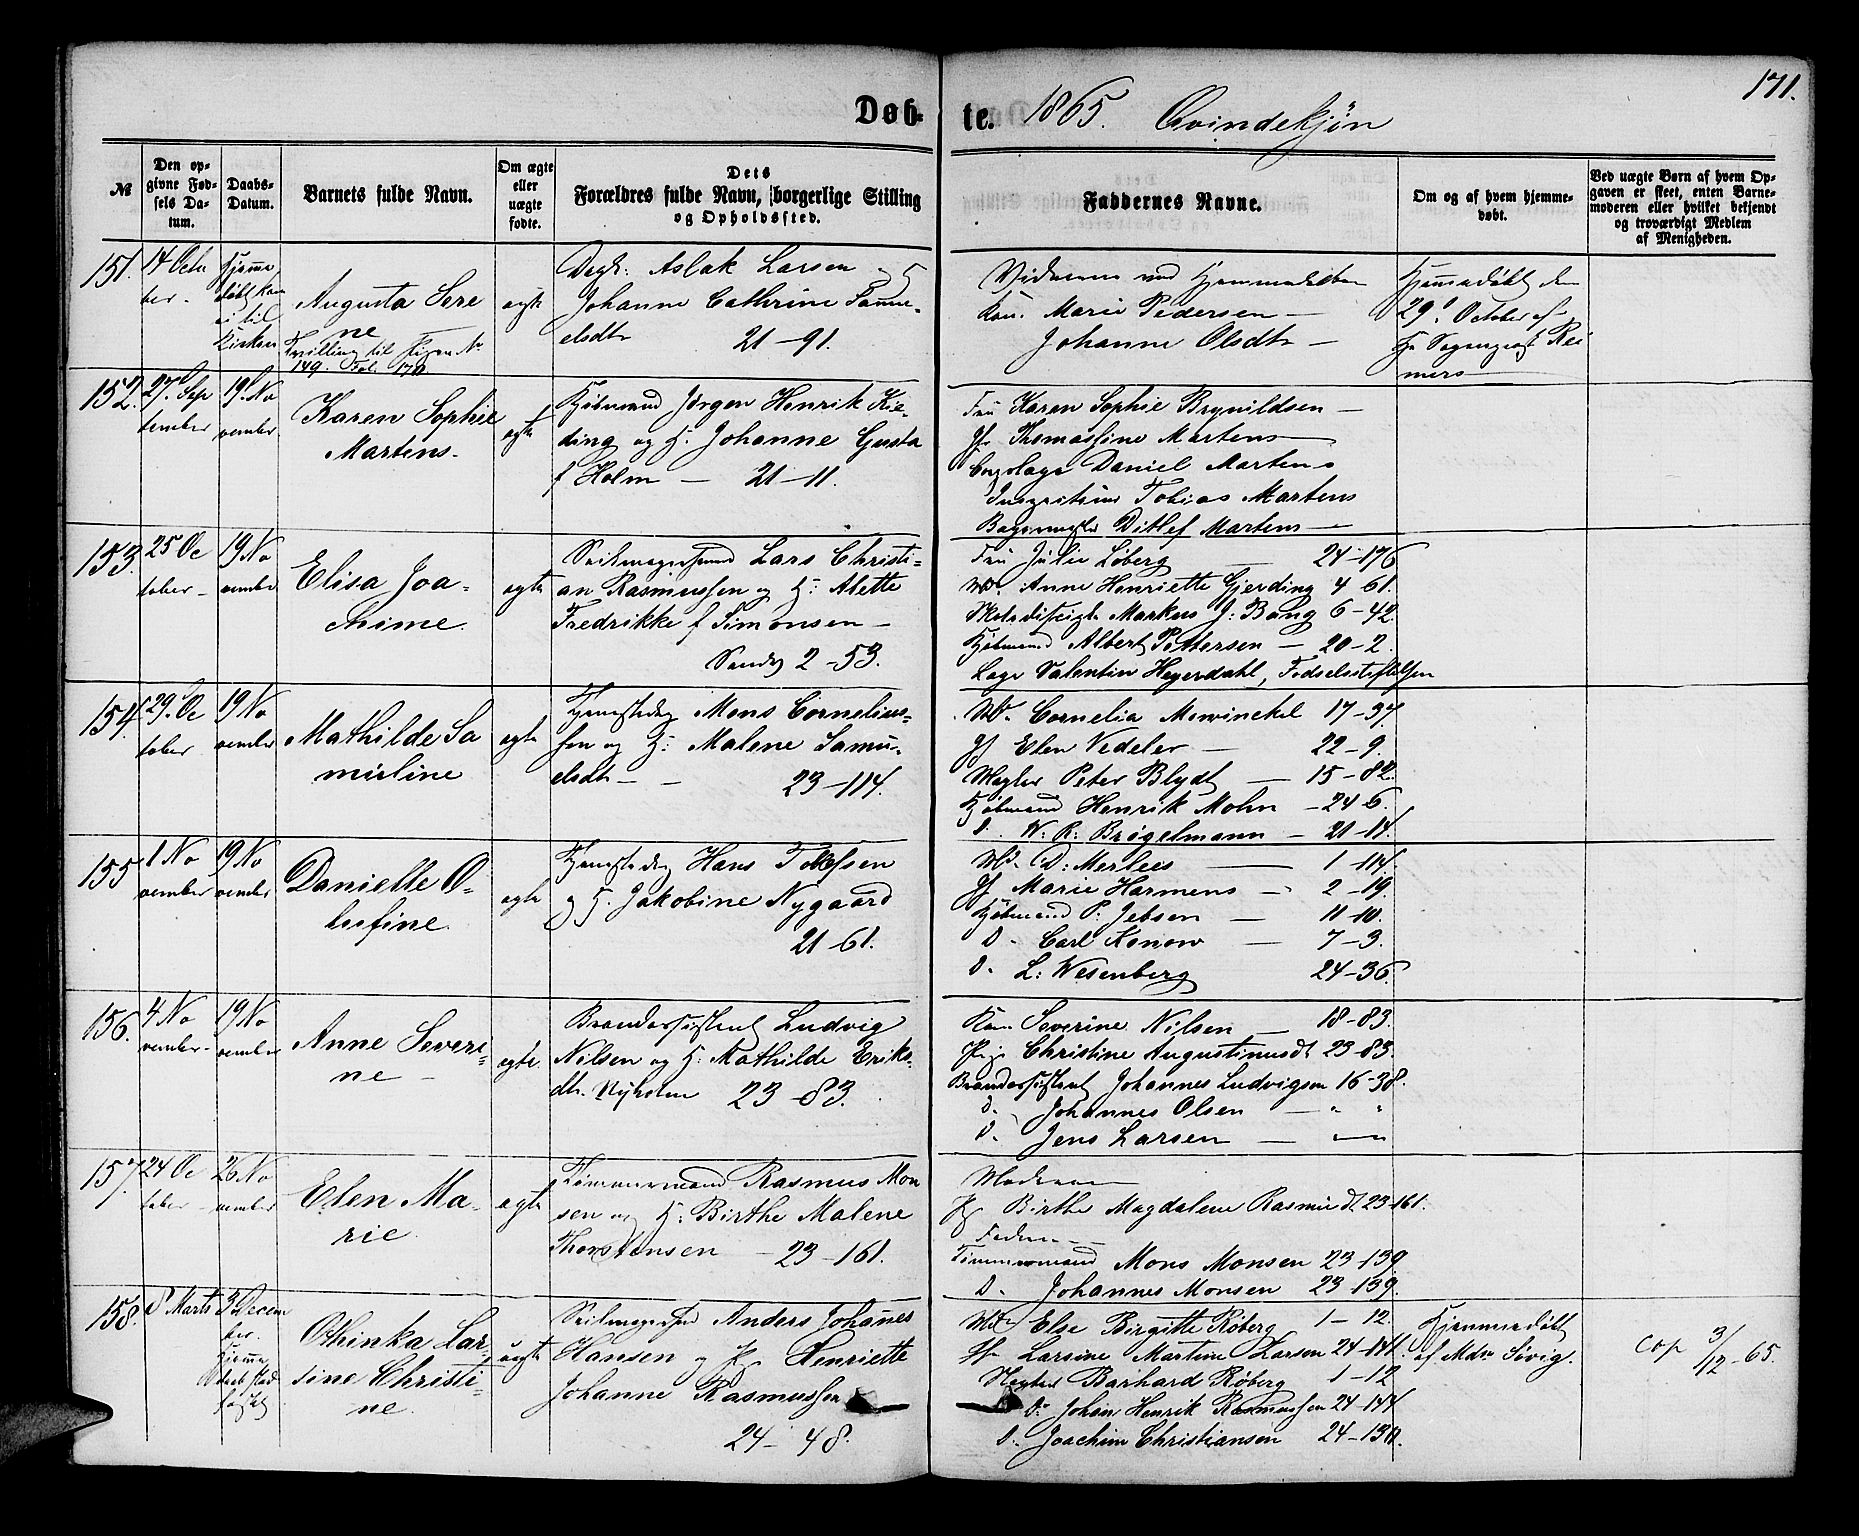 171.
Døb-te. 1865. Qvindekjøn
№
Den op-
givne Fød-
sels Da-
tum.
Daabs-
Datum.
Barnets fulde Navn.
Om ægte
eller
uægte
fødte.
Dets
Forældres fulde Navn, borgerlige Stilling
og Opholdssted.
Faddernes Navne.
Om og af hvem hjemme-
døbt.
Ved uægte Børn af hvem Op-
gaven er skeet, enten Barne-
moderen eller hvilket bekjendt
og troværdigt Medlem
af Menigheden.
151. 14 Octo
ber.
Hjemme
døbt kom
ei til
Kirken
Augusta Sere
ne
Tvilling til Pigen No
149. Fol. 170
ægte
Dagk: Aslak Larsen og
Johanne Cathrine Samu-
elsdtr 21-91.
Vidnerne ved Hjemmedaaben
Kon. Marie Pedersen
Johanne Olsdtr
Hjemmedøbt den
29 October af
Hr Sogneprest Rei
mers
152. 27 Sep
tember
19 No
vember
Karen Sophie
Martens.
ægte
Kjøbmand Jørgen Henrik Kie-
ding og H. Johanne Gusta
f Holm 21-11.
Fru Karen Sophie Brynildsen
Jf Thomassine Martens
Daniel Martens
Tobias Martens
Bagermester Ditlef Martens
153. 25 Oc
tober
19 No
vember
Elisa Joa-
chime.
ægte
Seilmagersvend Lars Christi-
an Rasmussen og H: Alette
Fredrikke f Simonsen
2-53.
Fru Julie Løberg 24-176
Md. Anne Henriette Gjerding 4-61.
Markus J. Bang 6-42
Kjøbmand Albert Pettersen 20-2.
Læge Valentin Heyerdahl, Fødselsstiftelsen
154. 29 Oc
tober
19 No
vember
Mathilde Sa
mueline
ægte
Mons Cornelius-
sen og H: Malene Samu-
elsdtr 23-114.
Md. Cornelia Mowinckel 17-37.
Jf Elen Vedeler 22-9.
Mægler Peter Blydt 15-82.
Kjøbmand Henrik Mohn 24-6.
D. W. R. Brøgelmann 21-14.
155 1 No
vember
19 No
vember
Danielle O-
lufine.
ægte
Hans Tollefsen
og H. Jakobine Nygaard
21-61.
Md. D: Merlees 1-114.
Jf Marie Harmens 2-19.
Kjøbmand P: Jebsen 11-10.
D. Carl Konow 7-3.
D. L: Wesenberg 24-36.
156. 4 No
vember
19 No
vember
Anne Severi-
ne
ægte.
Brandassistent Ludvig
Nilsen og H. Mathilde Eriks-
dtr. 23-83.
Kon Severine Nilsen 18-83.
Pige Christine Augustinusdt 23-83.
Brandassistent Johannes Ludvigsen 16-38.
D. Johannes Olsen " "
D. Jens Larsen
157. 24 Oc
tober
26 No
vember
Elen Ma-
rie.
ægte
Tømmermand Rasmus Mon
sen og H: Birthe Malene
Thorstensen 23-161.
Moderen
Pg Birthe Magdalene Rasmusdt 23-161.
Faderen
Tømmermand Mons Monsen 23-139.
D. Johannes Monsen 23-139.
158. 8 Marts
3 Decem
ber.
Hjemme
daab stad
fæstet
Othinka Lar-
sine Christi-
ne.
uægte
Seilmagersvend Anders Johannes
Hansen og Pg Henriette
Johanne Rasmussen
24-48.
Md Else Birgitte Røberg 1-12.
Larsine Martine Larsen 24-141.
Mægler Barhard Røberg 1-12
D. Johan Henrik Rasmussen 24-144
D. Joachim Christiansen 24-130.
Hjemmedøbt
af Mdm Søvig.
Cop 3/12-65.